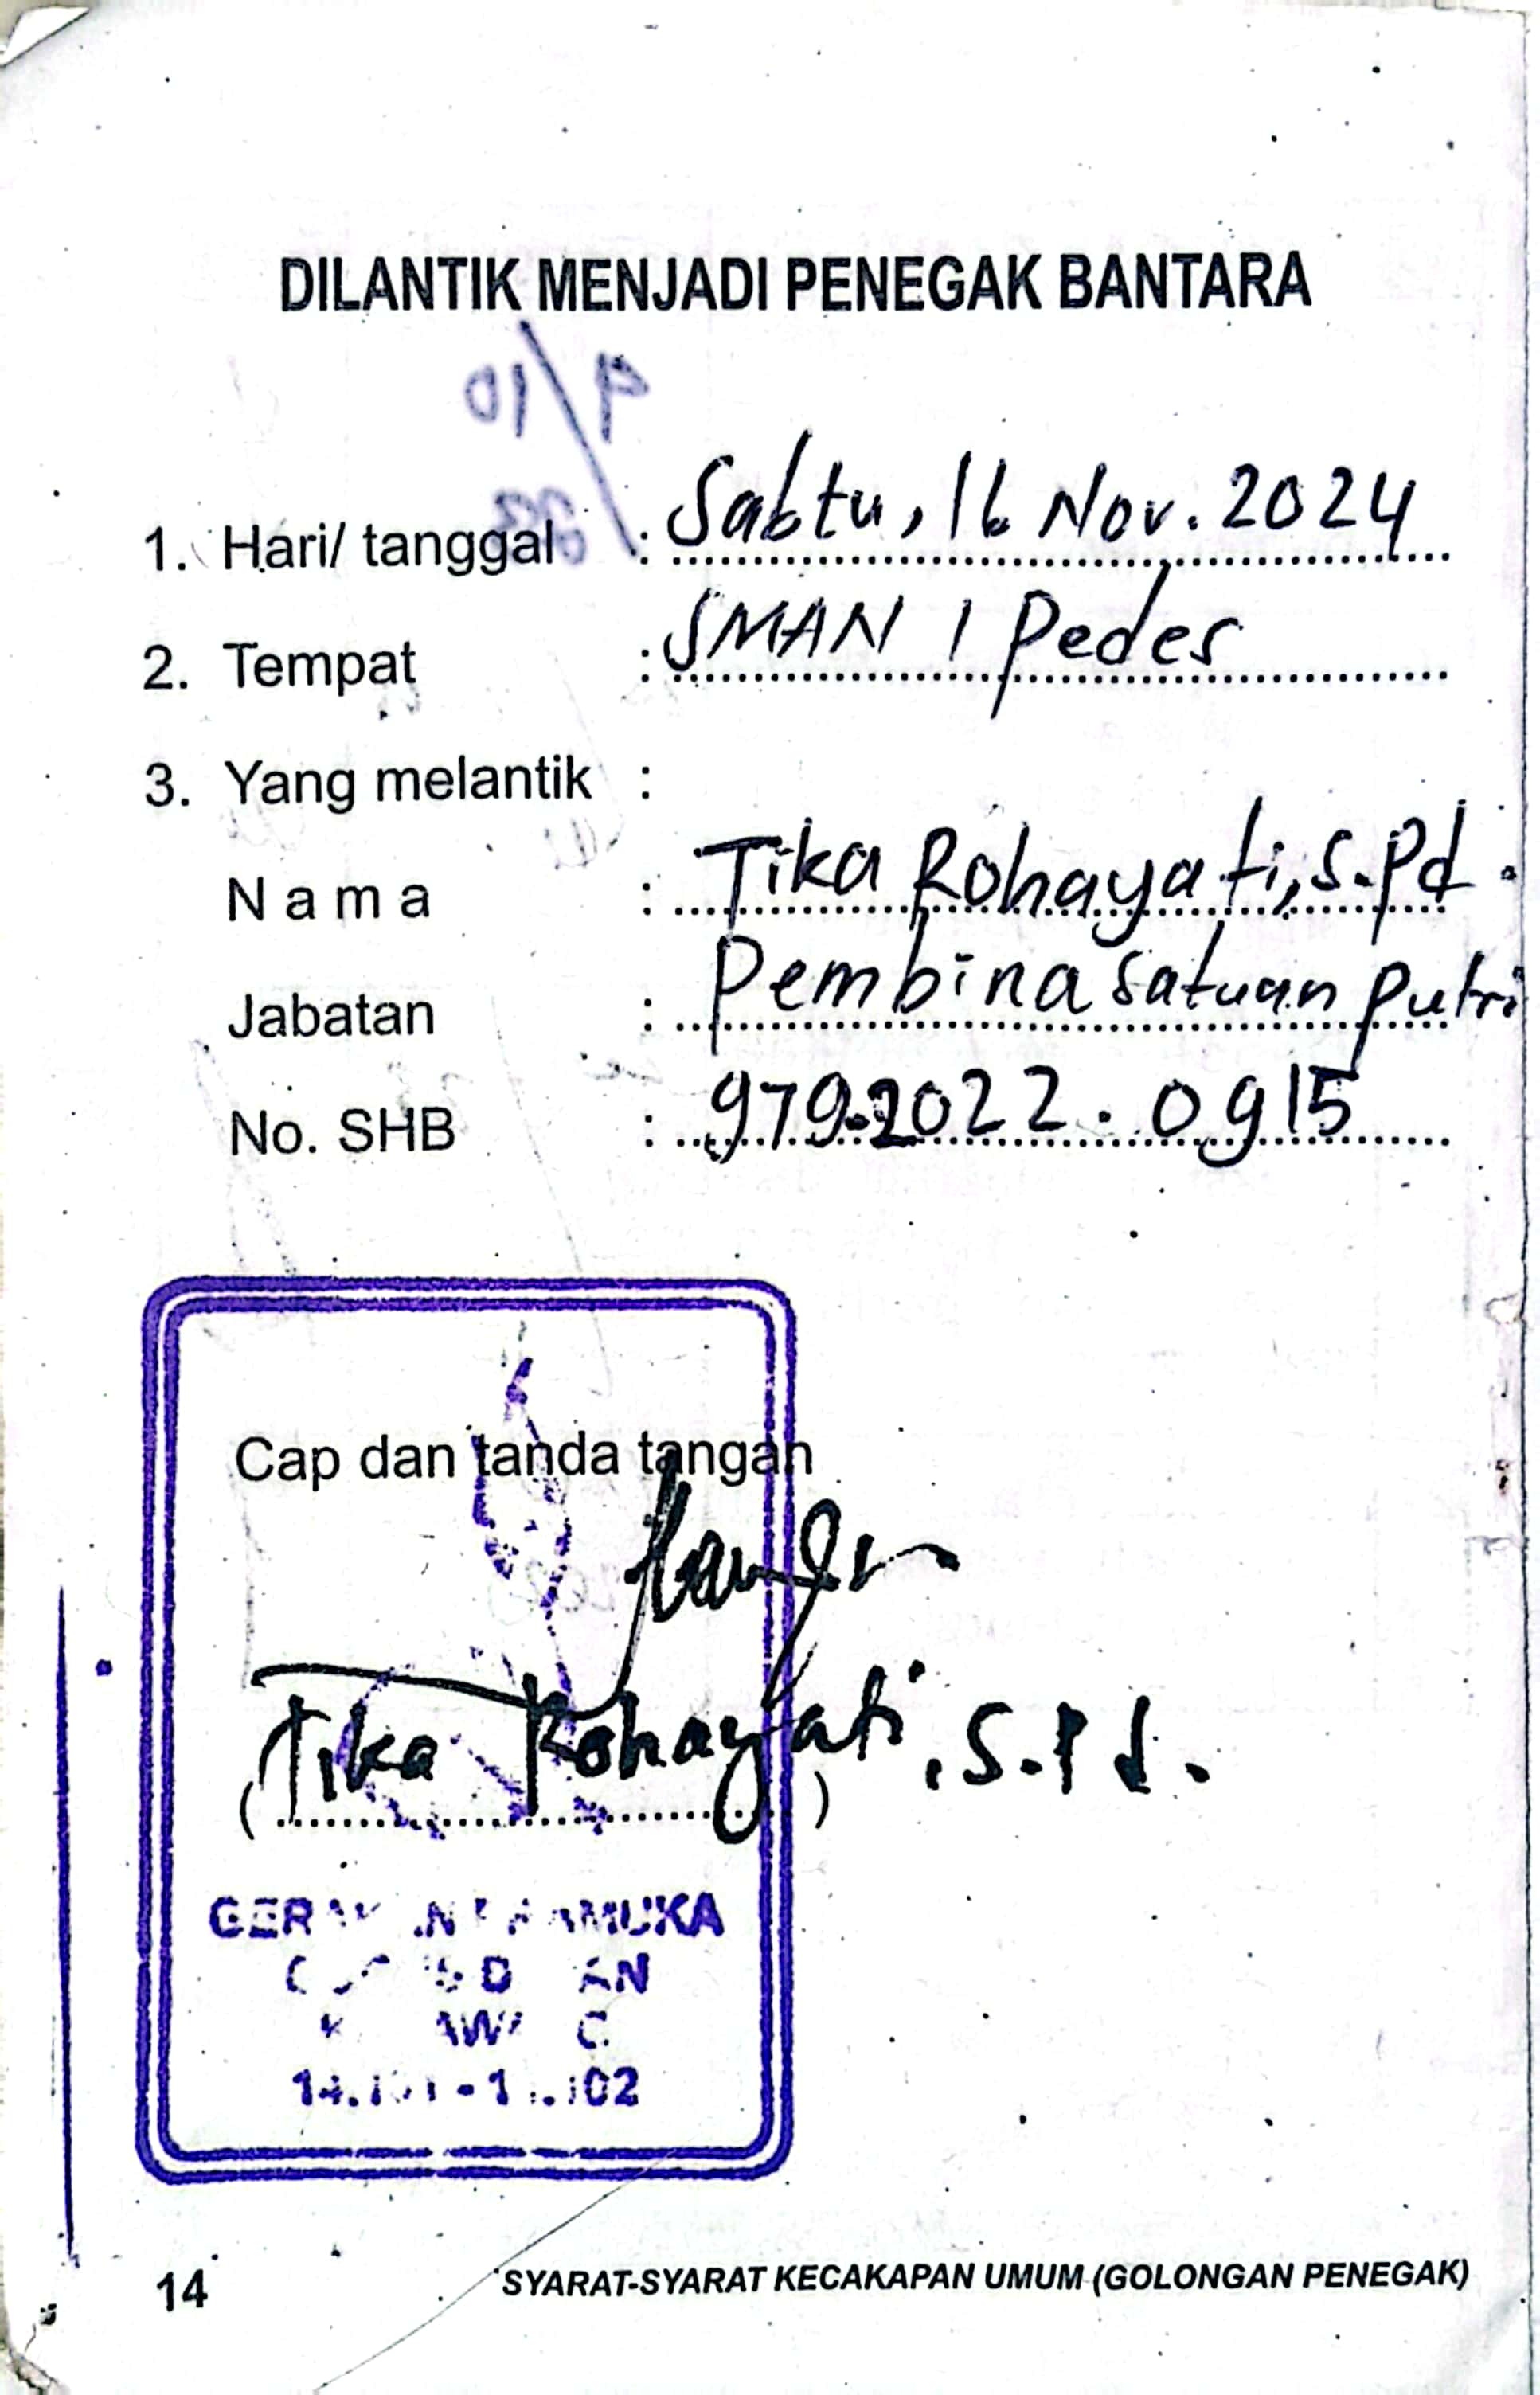 DILANTIK MENJADI PENEGAK BANTARA
1. Hari/ tanggal : Sabtu, 16 Nov. 2024
2. Tempat : SMAN 1 Pedes
3. Yang melantik :
N a m a : Tika Rohayati, S.Pd.
Jabatan : Pembina Satuan Putri
No. SHB : 979.2022.0915
Cap dan tanda tangan
(Tika Rohayati, S.Pd.)
14
SYARAT-SYARAT KECAKAPAN UMUM (GOLONGAN PENEGAK)